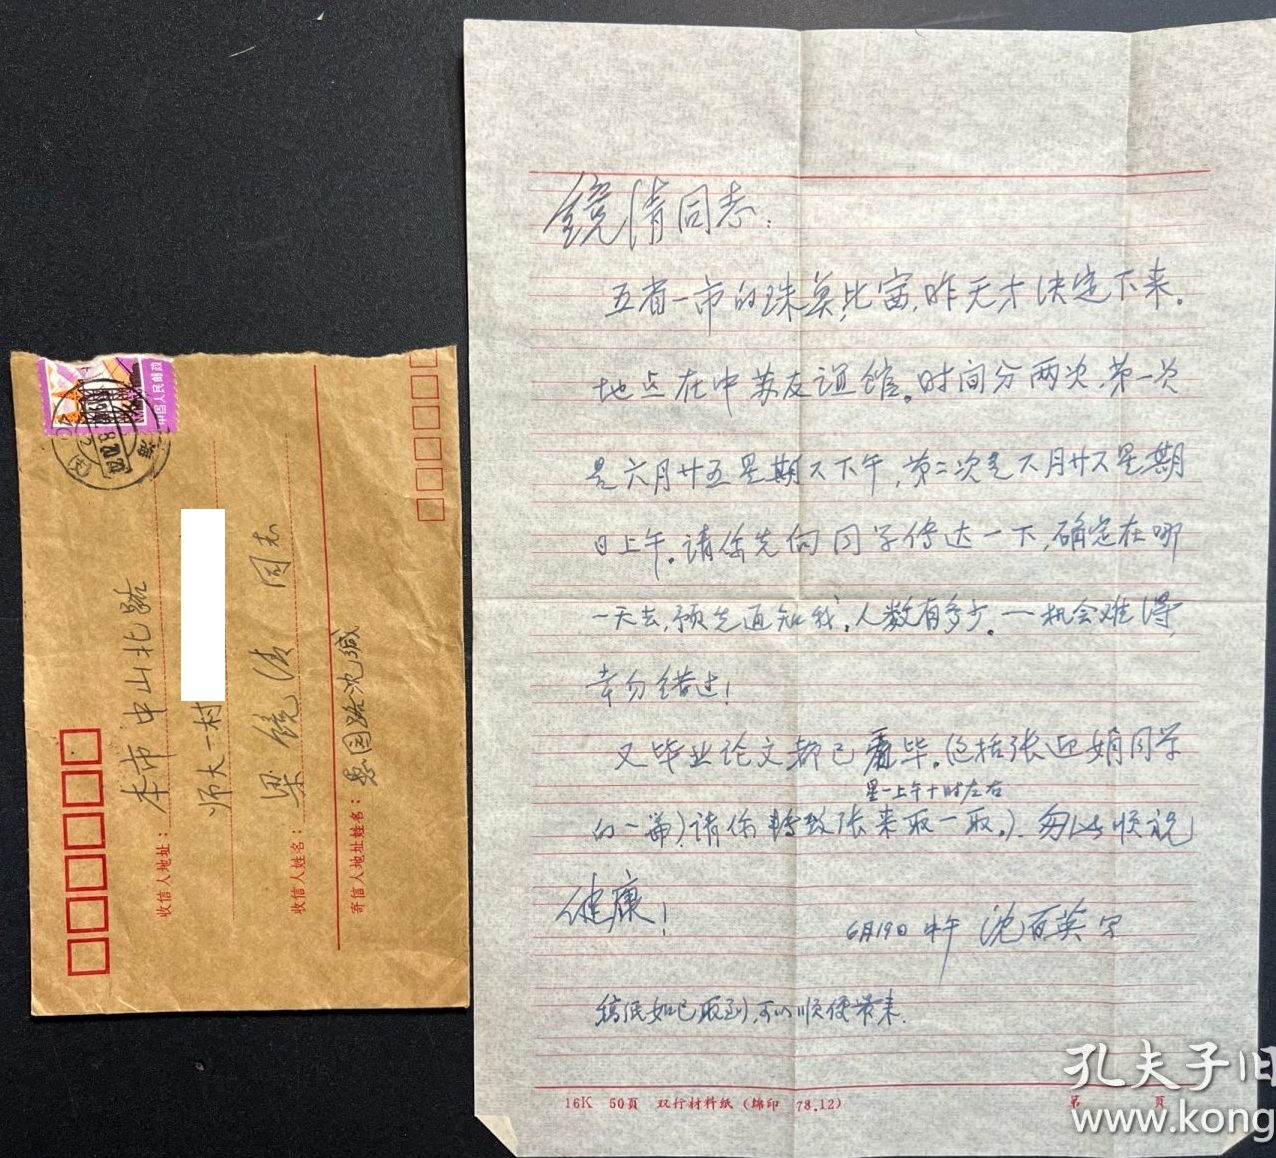 镜清同志：
五省一市的珠算比赛，昨天才决定下来。
地点在中苏友谊馆。时间分两次，第一次
是六月廿五星期六下午，第二次是六月廿六星期
日上午。请你先向同学传达一下，确定在哪
一天去，预先通知我，人数有多少。一机会难得，
幸勿错过！
又毕业论文都已看毕。(包括张迎娟同学
星一上午十时左右
的一篇)请你转致张来取一取。)匆此顺祝
健康！
6月19日 中午 沈百英字
稿纸如已取到，可以顺便带来。
16K 50頁 双行材料纸 (绵印 78.12)
第 頁
中国人民邮政
上海
收信人地址：本市中山北路
师大一村
收信人姓名：梁镜清 同志
寄信人地址姓名：愚园路沈缄
孔夫子旧
www.kong